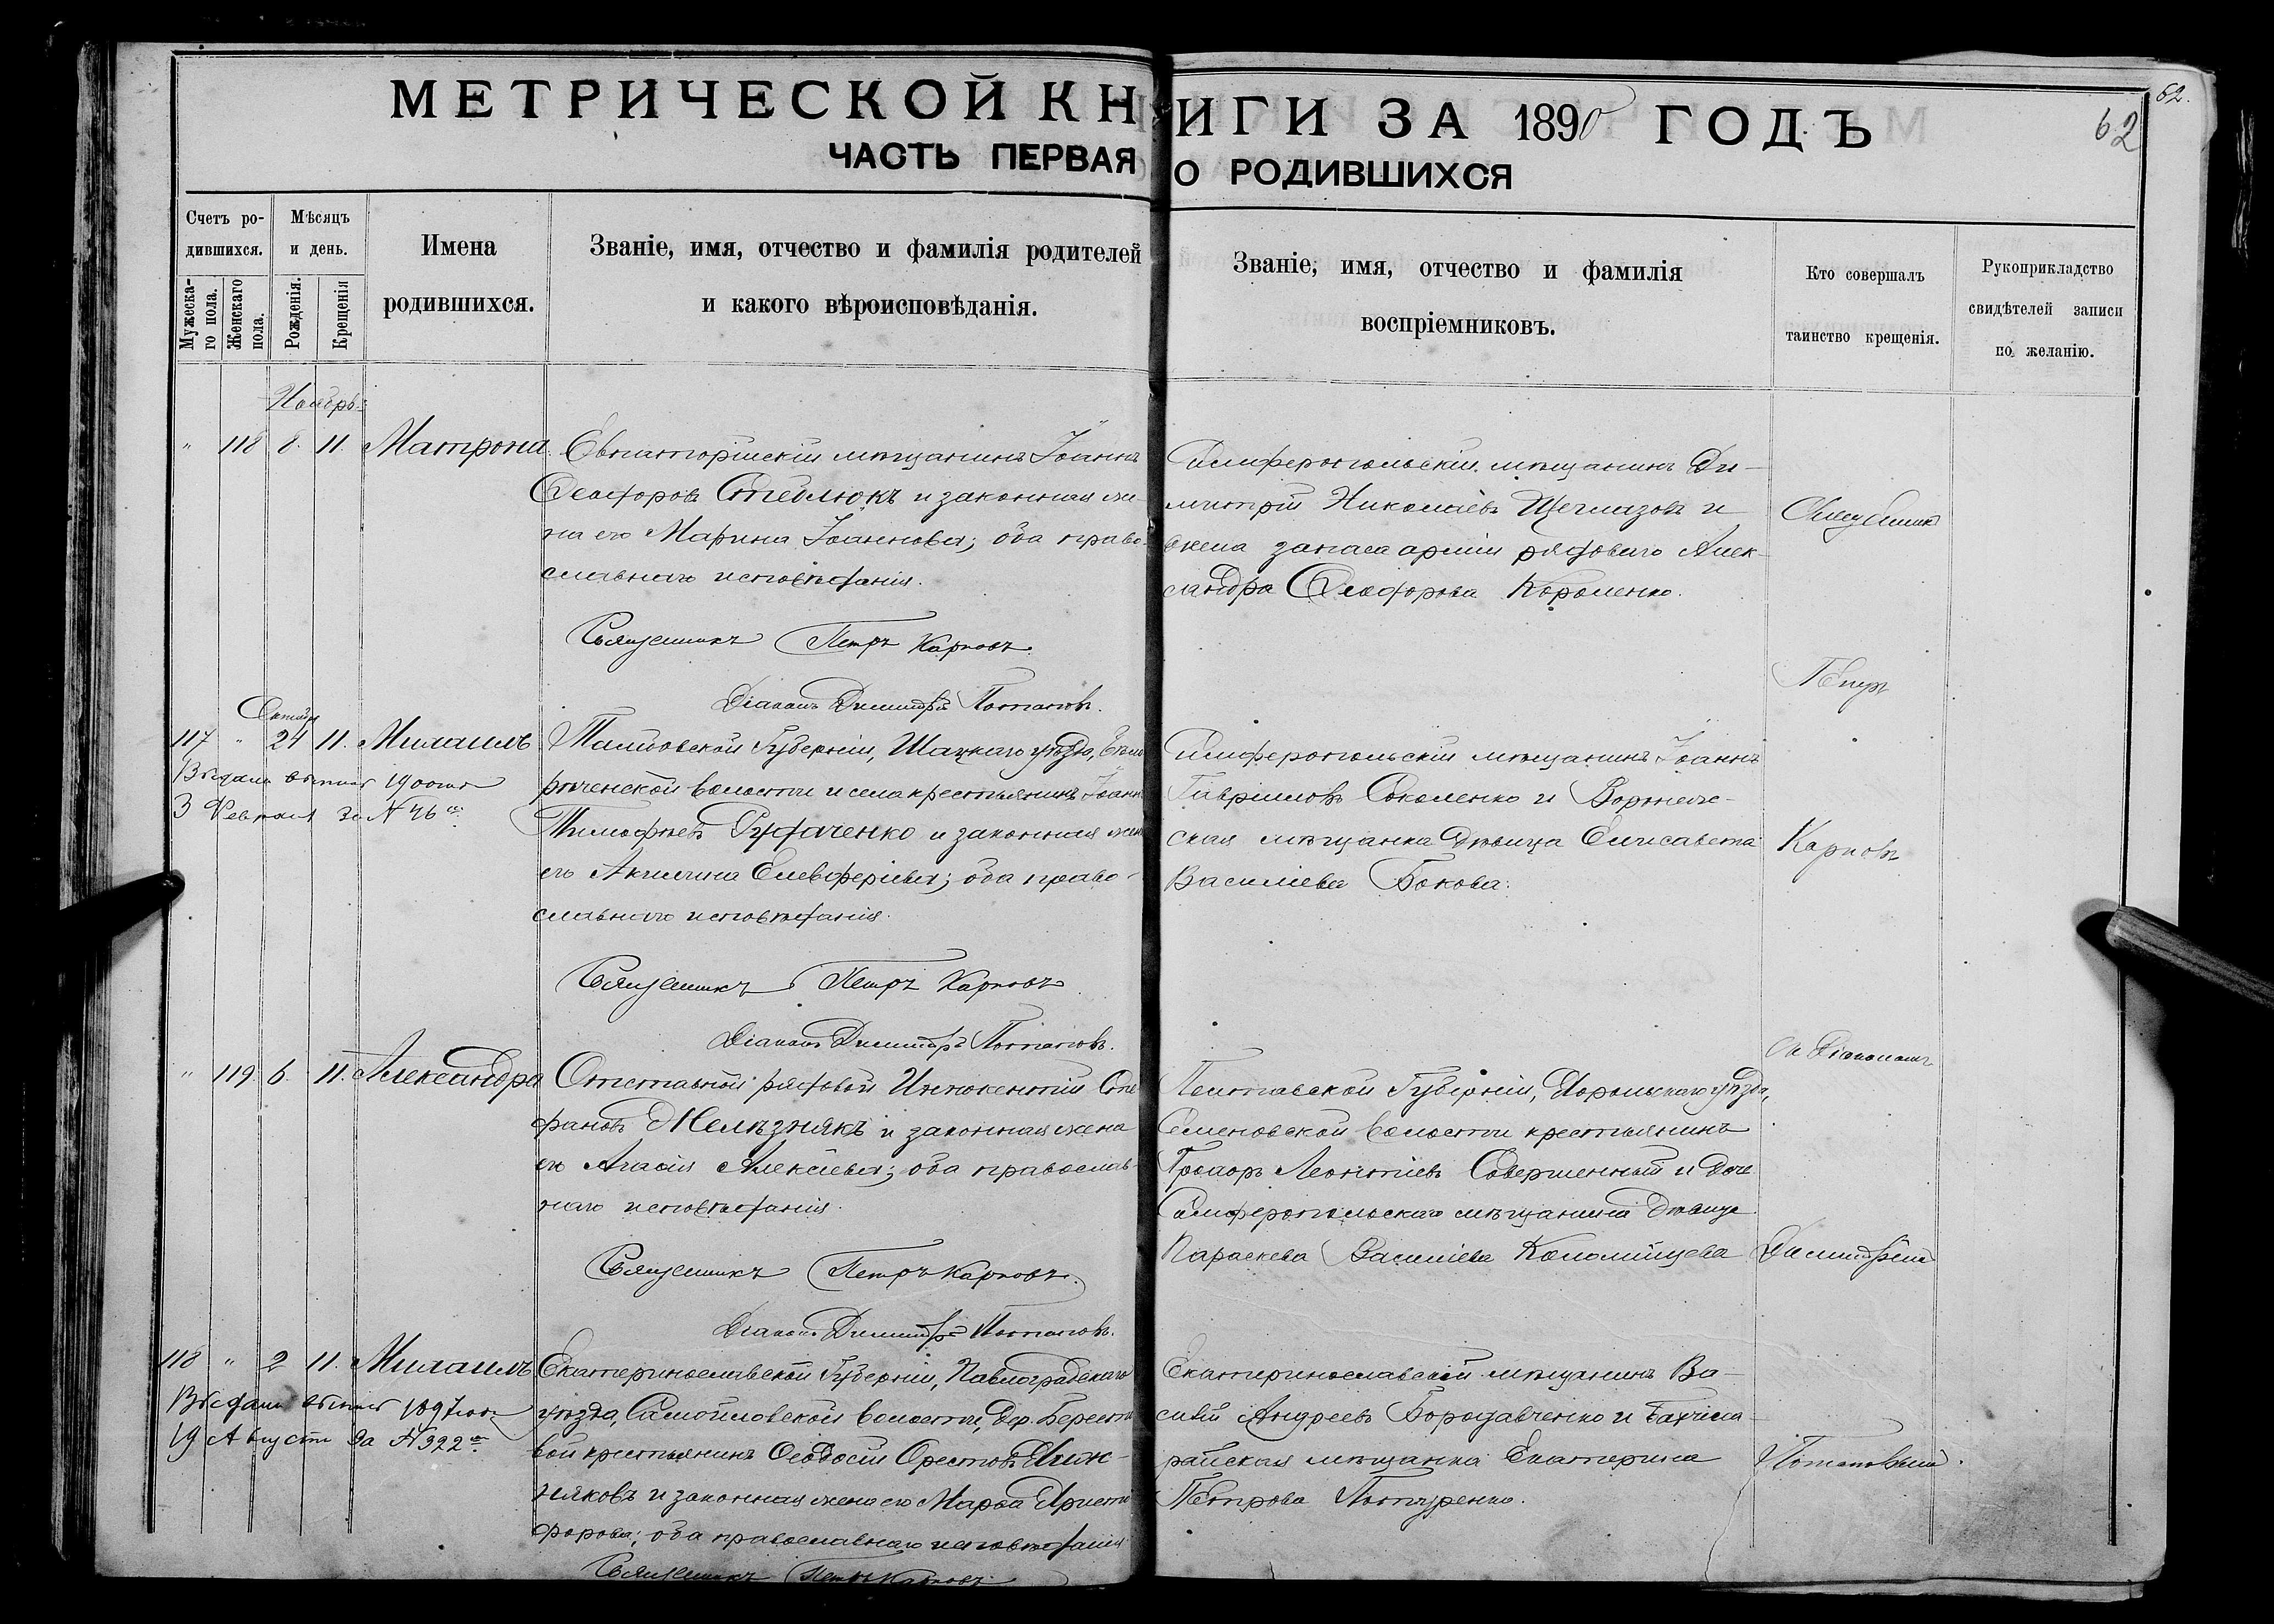 МЕТРИЧЕСКОЙ КНИГИ ЗА 1890 ГОДЪ
62.
62
ЧАСТЬ ПЕРВАЯ О РОДИВШИХСЯ
Счетъ ро-
дившихся.
Мужеска-
го пола.
Женскаго
пола.
Мѣсяцъ
и день.
Рожденія.
Крещенія
Имена
родившихся.
Званіе, имя, отчество и фамилія родителей
и какого вѣроисповѣданія.
Званіе, имя, отчество и фамилія
воспріемниковъ.
Кто совершалъ
таинство крещенія.
Рукоприкладство
свидѣтелей записи
по желанію.
Ноябрь
" 118 8. 11. Матрона
Евпаторійскій мѣщанинъ Іоаннъ
Ѳеодоровъ и законная же-
на его Марина Іоаннова; оба право-
славнаго исповѣданія.
Священникъ Петръ Карповъ.
Діаконъ Димитрій Потаповъ.
Симферопольскій мѣщанинъ Ди-
митрій Николаевъ и
жена запаса арміи рядоваго Алек-
сандра Ѳеодорова Короленко.
Священникъ
Петръ
Октября
117 " 24 11. Михаилъ
Выдана выпись 1900 года
3 Февраля за № 46
Тамбовской Губерніи, Шацкаго уѣзда,
волости и села крестьянинъ Іоаннъ
Тимофѣевъ Рудаченко и законная жена
его Акилина Елевферіева; оба право-
славнаго исповѣданія.
Священникъ Петръ Карповъ
Діаконъ Димитрій Потаповъ.
Симферопольскій мѣщанинъ Іоаннъ
Гавріиловъ Соколенко и Воронеж-
ская мѣщанка дѣвица Елисавета
Василіева Бокова.
Карповъ
" 119. 6. 11. Александра
Отставной рядовой Иннокентій Сте-
фановъ Желѣзнякъ и законная жена
его Агафія Алексіева; оба православ-
наго исповѣданія.
Священникъ Петръ Карповъ.
Діаконъ Димитрій Потаповъ.
Полтавской Губерніи, Хорольскаго уѣзда,
Семеновской волости крестьянинъ
Леонтіевъ Совершенный и дочь
Симферопольскаго мѣщанина дѣвица
Параскева Василіева Коломійцева
съ Діакономъ
Димитріемъ
118 " 2 11. Михаилъ
Выдана выпись 1897 года
19 Августа за № 322
Екатеринославской Губерніи, Павлоградскаго
уѣзда, Самойловской волости, дер. Бересто-
вой крестьянинъ Ѳеодосій Орестовъ
и законная жена его Марѳа Христо-
форова; оба православнаго исповѣданія
Священникъ Петръ Карповъ.
Екатеринославскій мѣщанинъ Ва-
силій Андреевъ Бородавченко и Бахчиса-
райская мѣщанка Екатерина
Петрова Потуренко.
Потаповымъ.